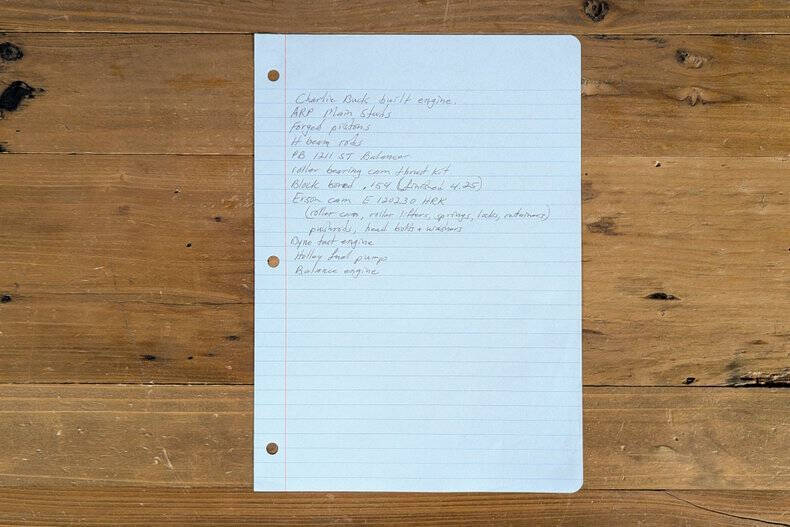 Charlie Buck built engine.
ARP Main Studs
Forged pistons
H beam rods
PB 1211 ST Balancer
roller bearing cam thrust kit
Block bored .154 (finished 4.25)
Erson cam E 120230 HRK
(roller cam, roller lifters, springs, locks, retainers)
pushrods, head bolts + washers
Dyno test engine
Holley fuel pump
Balance engine